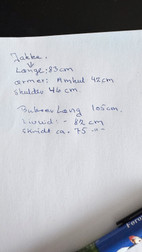 Jakke.
Længe: 83 cm
ærmer: Ambul 42 cm
skulder 46 cm.
Buksen Lang 105 cm.
Livvid: - 82 cm
Skridt ca. 75 -"-